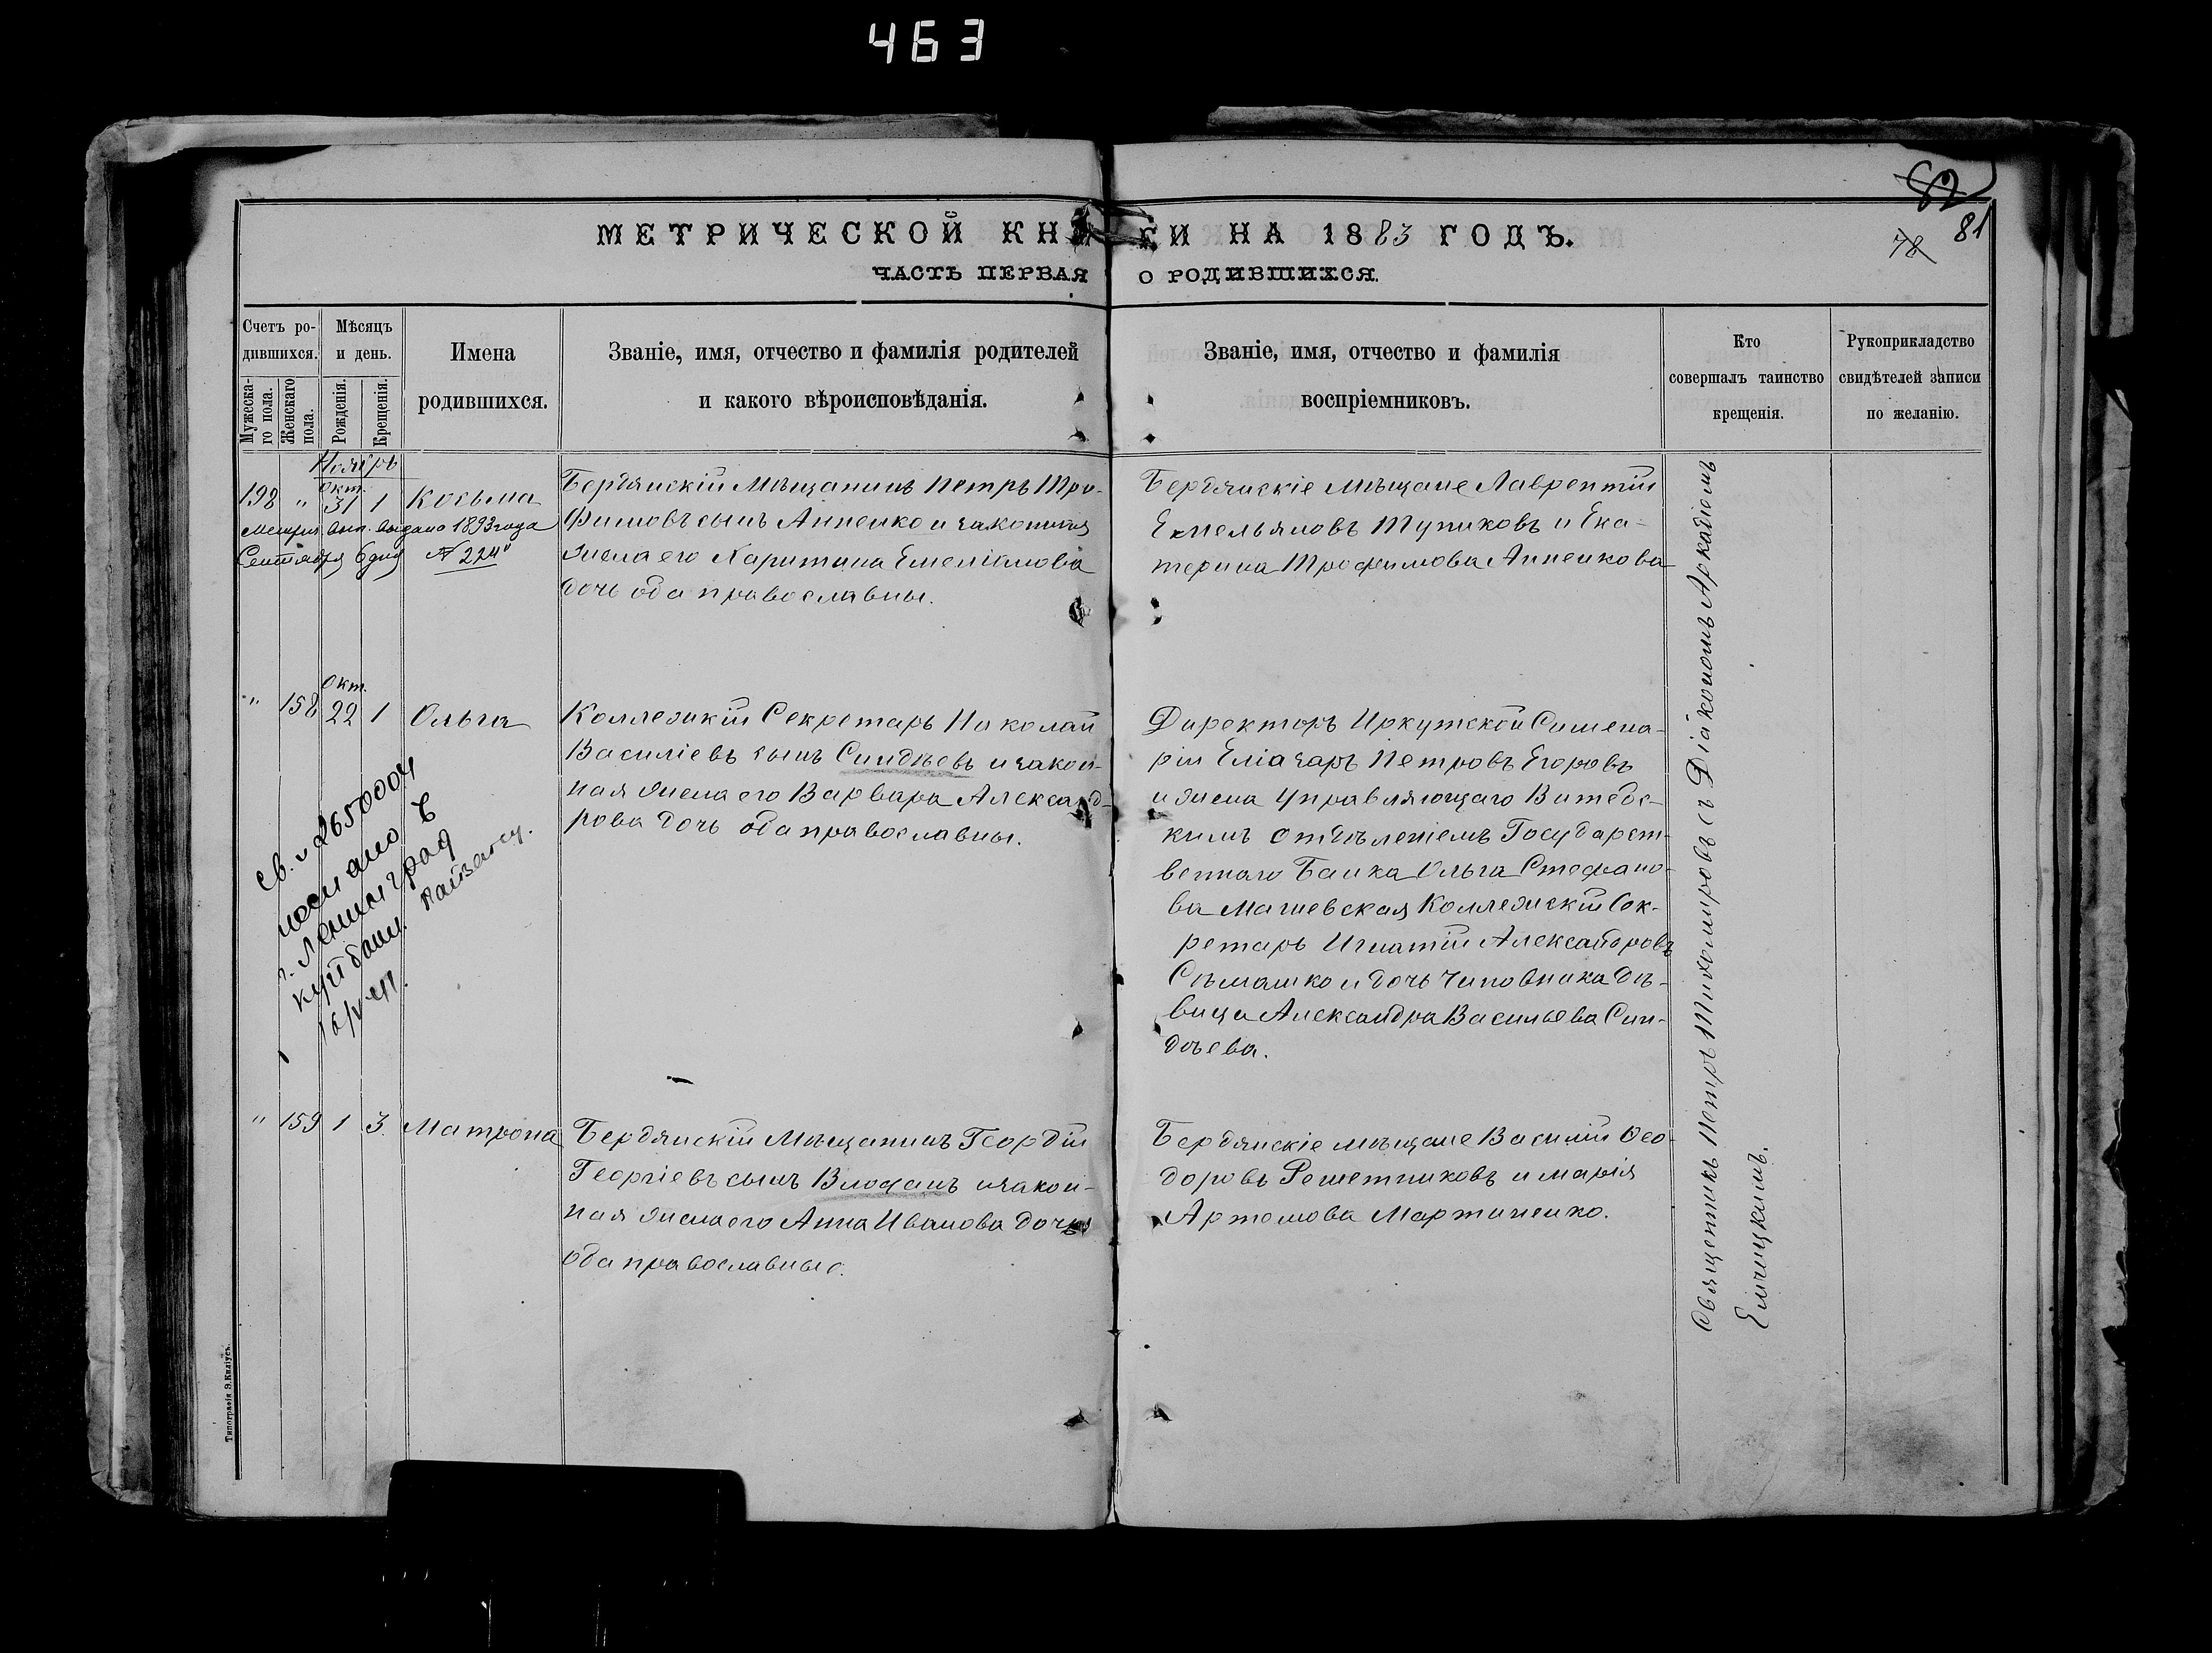 463
82
78
81
МЕТРИЧЕСКОЙ КНИГИ НА 1883 ГОДЪ.
ЧАСТЬ ПЕРВАЯ О РОДИВШИХСЯ.
Счетъ родившихся.
Мужескаго пола.
Женскаго пола.
Мѣсяцъ и день.
Рожденія.
Крещенія.
Имена родившихся.
Званіе, имя, отчество и фамилія родителей
и какого вѣроисповѣданія.
Званіе, имя, отчество и фамилія
воспріемниковъ.
Кто
совершалъ таинство
крещенія.
Рукоприкладство
свидѣтелей записи
по желанію.
Ноябрь
Окт.
198 " 31 1 Косьма
Метрич. вып. выдана 1893 года
Сентября 6 дня № 224
Бердянскій Мѣщанинъ Петръ Тро-
фимовъ сынъ Анненко и законная
жена его Харитина Емеліянова
дочь оба православны.
Бердянскіе мѣщане Лаврентій
Емельяновъ Тупиковъ и Ека-
терина Трофимова Анненкова
Окт.
" 158 22 1 Ольга
Св. 265000
послано в
г. Ленинград
Коллежскій Секретарь Николай
Василіевъ сынъ Синдѣевъ и закон-
ная жена его Варвара Александ-
рова дочь оба православны.
Директоръ Иркутской Симена-
ріи Еліазаръ Петровъ Егоровъ
и жена Управляющаго Витебс-
кимъ отдѣленіемъ Государст-
веннаго Банка Ольга Стефано-
ва Мачевская Коллежскій Сек-
ретарь Игнатій Александровъ
Сѣмашко и дочь Чиновника дѣ-
вица Александра Васильева Син-
дѣева.
" 159 1 3 Матрона
Бердянскій Мѣщанинъ Георгій
Георгіевъ сынъ и закон-
ная жена его Анна Иванова дочь
оба православные.
Бердянскіе мѣщане Василій Ѳео-
доровъ Решетниковъ и Марія
Артемова Мартиненко.
Священникъ Петръ Тихомировъ съ Діакономъ Аркадіемъ
Типографія Э. Киліусъ.